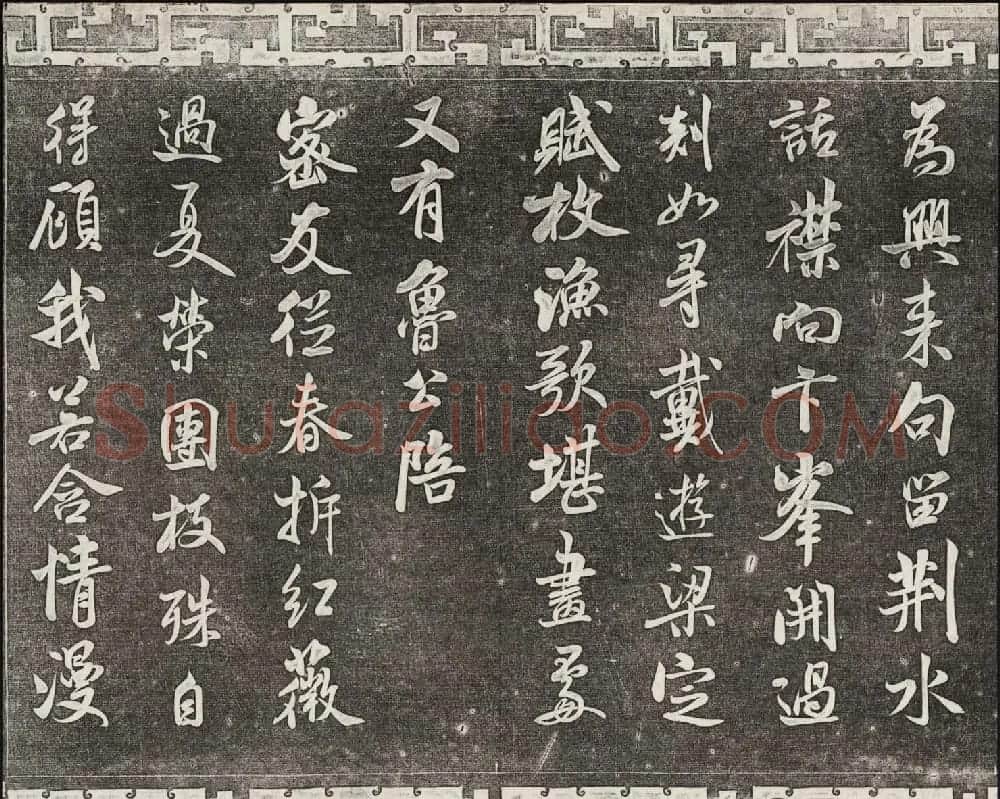 為興来句留荆水
話襟向卞峯開過
剡如尋戴遊梁定
賦枚漁歌堪畫處
又有魯公陪
密友從春拆紅薇
過夏榮團枝殊自
得顧我若含情漫
Shufaziliao.COM